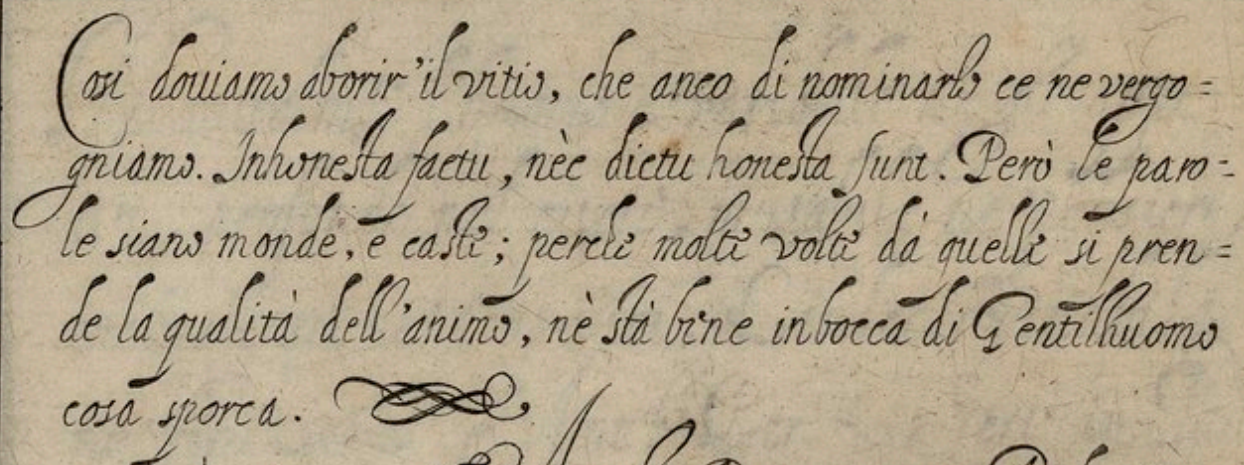 Cosi douiamo aborir' il vitio, che anco di nominarlo ce ne vergo=
gniamo. Inhonesta factu, nèc dictu honesta sunt. Però le paro=
le siano monde, e caste; perche molte volte dà quelle si pren=
de la qualità dell'animo, nè stà bene in bocca di Gentilhuomo
cosa sporca.